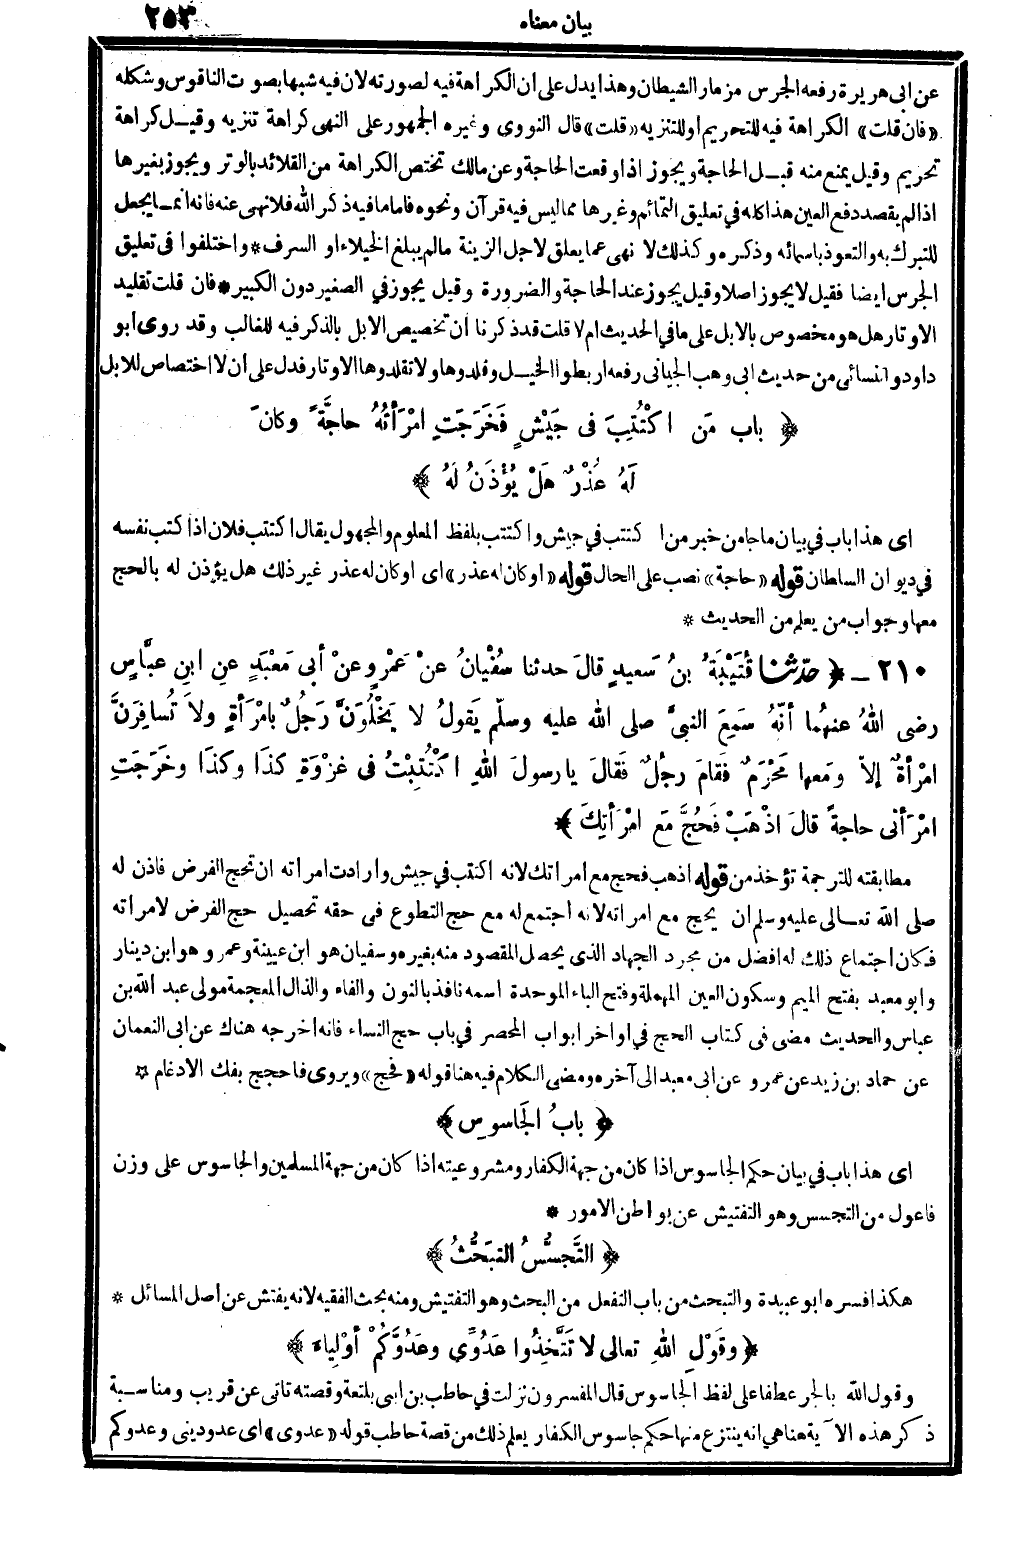 بيان معناه
٢٥٣
عن ابى هريرة رفعه الجرس مزمار الشيطان وهذا يدل على ان الكراهة فيه لصورته لان فيه شبها بصوت الناقوس وشكله
«فان قلت» الكراهة فيه للتحريم او للتنزيه «قلت» قال النووى وغيره الجمهور على النهى كراهة تنزيه وقيل كراهة
تحريم وقيل يمنع منه قبل الحاجة ويجوز اذا وقعت الحاجة وعن مالك تختص الكراهة من القلائد بالوتر ويجوز بغيرها
اذا لم يقصد دفع العين هذا كله في تعليق التمائم وغيرها مما ليس فيه قرآن ونحوه فاما ما فيه ذكر الله فلا نهى عنه فانه انما يجعل
للتبرك به والتعوذ باسمائه وذكره وكذلك لا نهى عما يعلق لاجل الزينة ما لم يبلغ الخيلاء او السرف * واختلفوا فى تعليق
الجرس ايضا فقيل لا يجوز اصلا وقيل يجوز عند الحاجة والضرورة وقيل يجوز في الصغير دون الكبير * فان قلت تقليد
الاوتار هل هو مخصوص بالابل على ما في الحديث ام لا قلت قد ذكرنا ان تخصيص الابل بالذكر فيه للغالب وقد روى ابو
داود والنسائى من حديث ابى وهب الجيانى رفعه اربطوا الخيل وقلدوها ولا تقلدوها الاوتار فدل على ان لا اختصاص للابل
﴿ باب مَن اكْتُتِبَ فى جَيْشٍ فَخَرَجَتِ امْرَأَتُهُ حاجَّةً وكانَ
لَهُ عُذْرٌ هَلْ يُؤْذَنُ لَهُ ﴾
اى هذا باب في بيان ما جاء من خبر من اكتتب في جيش واكتتب بلفظ المعلوم والمجهول يقال اكتتب فلان اذا كتب نفسه
في ديوان السلطان قوله «حاجة» نصب على الحال قوله «او كان له عذر» اى او كان له عذر غير ذلك هل يؤذن له بالحج
معها وجواب من يعلم من الحديث *
٢١٠ - ﴿ حدّثنا قُتَيْبَةُ بنُ سَعيدٍ قالَ حدثنا سُفْيانُ عنْ عَمْرٍو عنْ أبى مَعْبَدٍ عنِ ابنِ عبَّاسٍ
رضى اللهُ عنهُما أنَّهُ سَمِعَ النبىَّ صلى الله عليه وسلّم يَقولُ لا يَخْلُوَنَّ رَجُلٌ بامْرَأةٍ ولاَ تُسافِرَنَّ
امْرأةٌ إلاّ ومَعها مَحْرَمٌ فقامَ رجُلٌ فَقالَ يا رسولَ اللهِ اكْتُتِبْتُ فى غزْوَةِ كذَا وكذَا وخَرَجَتِ
امْرَأتى حاجةً قالَ اذْهَبْ فَحُجَّ مَع امْرَأتِكَ ﴾
مطابقته للترجمة تؤخذ من قوله اذهب فحج مع امراتك لانه اكتتب في جيش وارادت امراته ان تحج الفرض فاذن له
صلى الله تعالى عليه وسلم ان يحج مع امراته لانه اجتمع له مع حج التطوع فى حقه تحصيل حج الفرض لامراته
فكان اجتماع ذلك له افضل من مجرد الجهاد الذى يحصل المقصود منه بغيره وسفيان هو ابن عيينة وعمرو هو ابن دينار
وابو معبد بفتح الميم وسكون العين المهملة وفتح الباء الموحدة اسمه نافذ بالنون والفاء والذال المعجمة مولى عبد الله بن
عباس والحديث مضى فى كتاب الحج في اواخر ابواب المحصر في باب حج النساء فانه اخرجه هناك عن ابى النعمان
عن حماد بن زيد عن عمرو عن ابى معبد الى آخره ومضى الكلام فيه هنا قوله «فحج» ويروى فاحجج بفك الادغام *
﴿ بابُ الجَاسوسِ ﴾
اى هذا باب في بيان حكم الجاسوس اذا كان من جهة الكفار ومشروعيته اذا كان من جهة المسلمين والجاسوس على وزن
فاعول من التجسس وهو التفتيش عن بواطن الامور *
﴿ التَّجسُّسُ التَبَحُّثُ ﴾
هكذا فسره ابو عبيدة والتبحث من باب التفعل من البحث وهو التفتيش ومنه بحث الفقيه لانه يفتش عن أصل المسائل *
﴿ وقَوْلِ اللهِ تعالى لا تَتَّخِذُوا عَدُوِّى وعَدُوَّكُمْ أوْلِياءَ ﴾
وقول الله بالجر عطفا على لفظ الجاسوس قال المفسرون نزلت في حاطب بن ابى بلتعة وقصته تاتى عن قريب ومناسبة
ذكر هذه الآية هنا هي انه ينتزع منها حكم جاسوس الكفار يعلم ذلك من قصة حاطب قوله «عدوى» اى عدو دينى وعدوكم